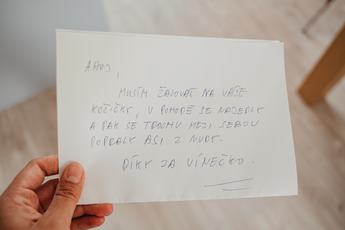 AHOJ,
MUSÍM ŽALOVAT NA VAŠE
KOČIČKY, V POHODĚ SE NAJEDLY
A PAK SE TROCHU MEZI SEBOU
POPRALY ASI Z NUDY.
DÍKY ZA VÍNEČKO.